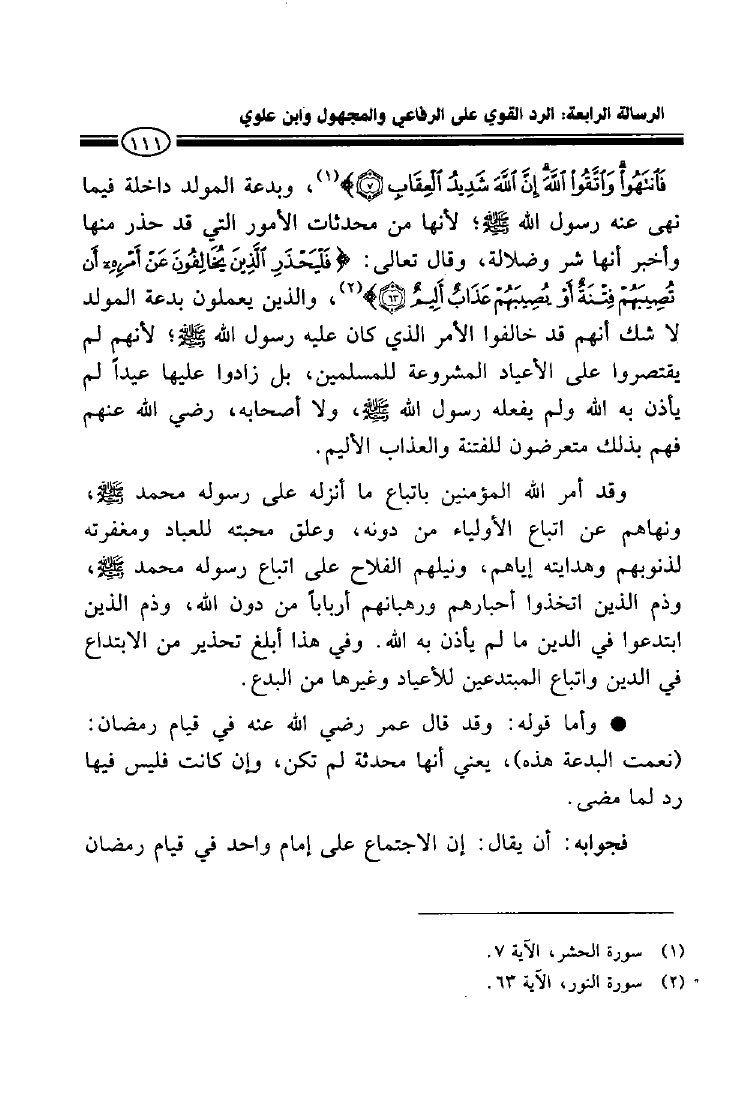 الرسالة الرابعة: الرد القوي على الرفاعي والمجهول وابن علوي
١١١
فَٱنتَهُوا۟ وَٱتَّقُوا۟ ٱللَّهَ إِنَّ ٱللَّهَ شَدِيدُ ٱلْعِقَابِ ۝٧﴾(١)، وبدعة المولد داخلة فيما
نهى عنه رسول الله ﷺ؛ لأنها من محدثات الأمور التي قد حذر منها
وأخبر أنها شر وضلالة، وقال تعالى: ﴿فَلْيَحْذَرِ ٱلَّذِينَ يُخَالِفُونَ عَنْ أَمْرِهِۦٓ أَن
تُصِيبَهُمْ فِتْنَةٌ أَوْ يُصِيبَهُمْ عَذَابٌ أَلِيمٌ ۝٦٣﴾(٢)، والذين يعملون بدعة المولد
لا شك أنهم قد خالفوا الأمر الذي كان عليه رسول الله ﷺ؛ لأنهم لم
يقتصروا على الأعياد المشروعة للمسلمين، بل زادوا عليها عيداً لم
يأذن به الله ولم يفعله رسول الله ﷺ، ولا أصحابه، رضي الله عنهم
فهم بذلك متعرضون للفتنة والعذاب الأليم.
وقد أمر الله المؤمنين باتباع ما أنزله على رسوله محمد ﷺ،
ونهاهم عن اتباع الأولياء من دونه، وعلق محبته للعباد ومغفرته
لذنوبهم وهدايته إياهم، ونيلهم الفلاح على اتباع رسوله محمد ﷺ،
وذم الذين اتخذوا أحبارهم ورهبانهم أرباباً من دون الله، وذم الذين
ابتدعوا في الدين ما لم يأذن به الله. وفي هذا أبلغ تحذير من الابتداع
في الدين واتباع المبتدعين للأعياد وغيرها من البدع.
● وأما قوله: وقد قال عمر رضي الله عنه في قيام رمضان:
(نعمت البدعة هذه)، يعني أنها محدثة لم تكن، وإن كانت فليس فيها
رد لما مضى.
فجوابه: أن يقال: إن الاجتماع على إمام واحد في قيام رمضان
(١) سورة الحشر، الآية ٧.
(٢) سورة النور، الآية ٦٣.